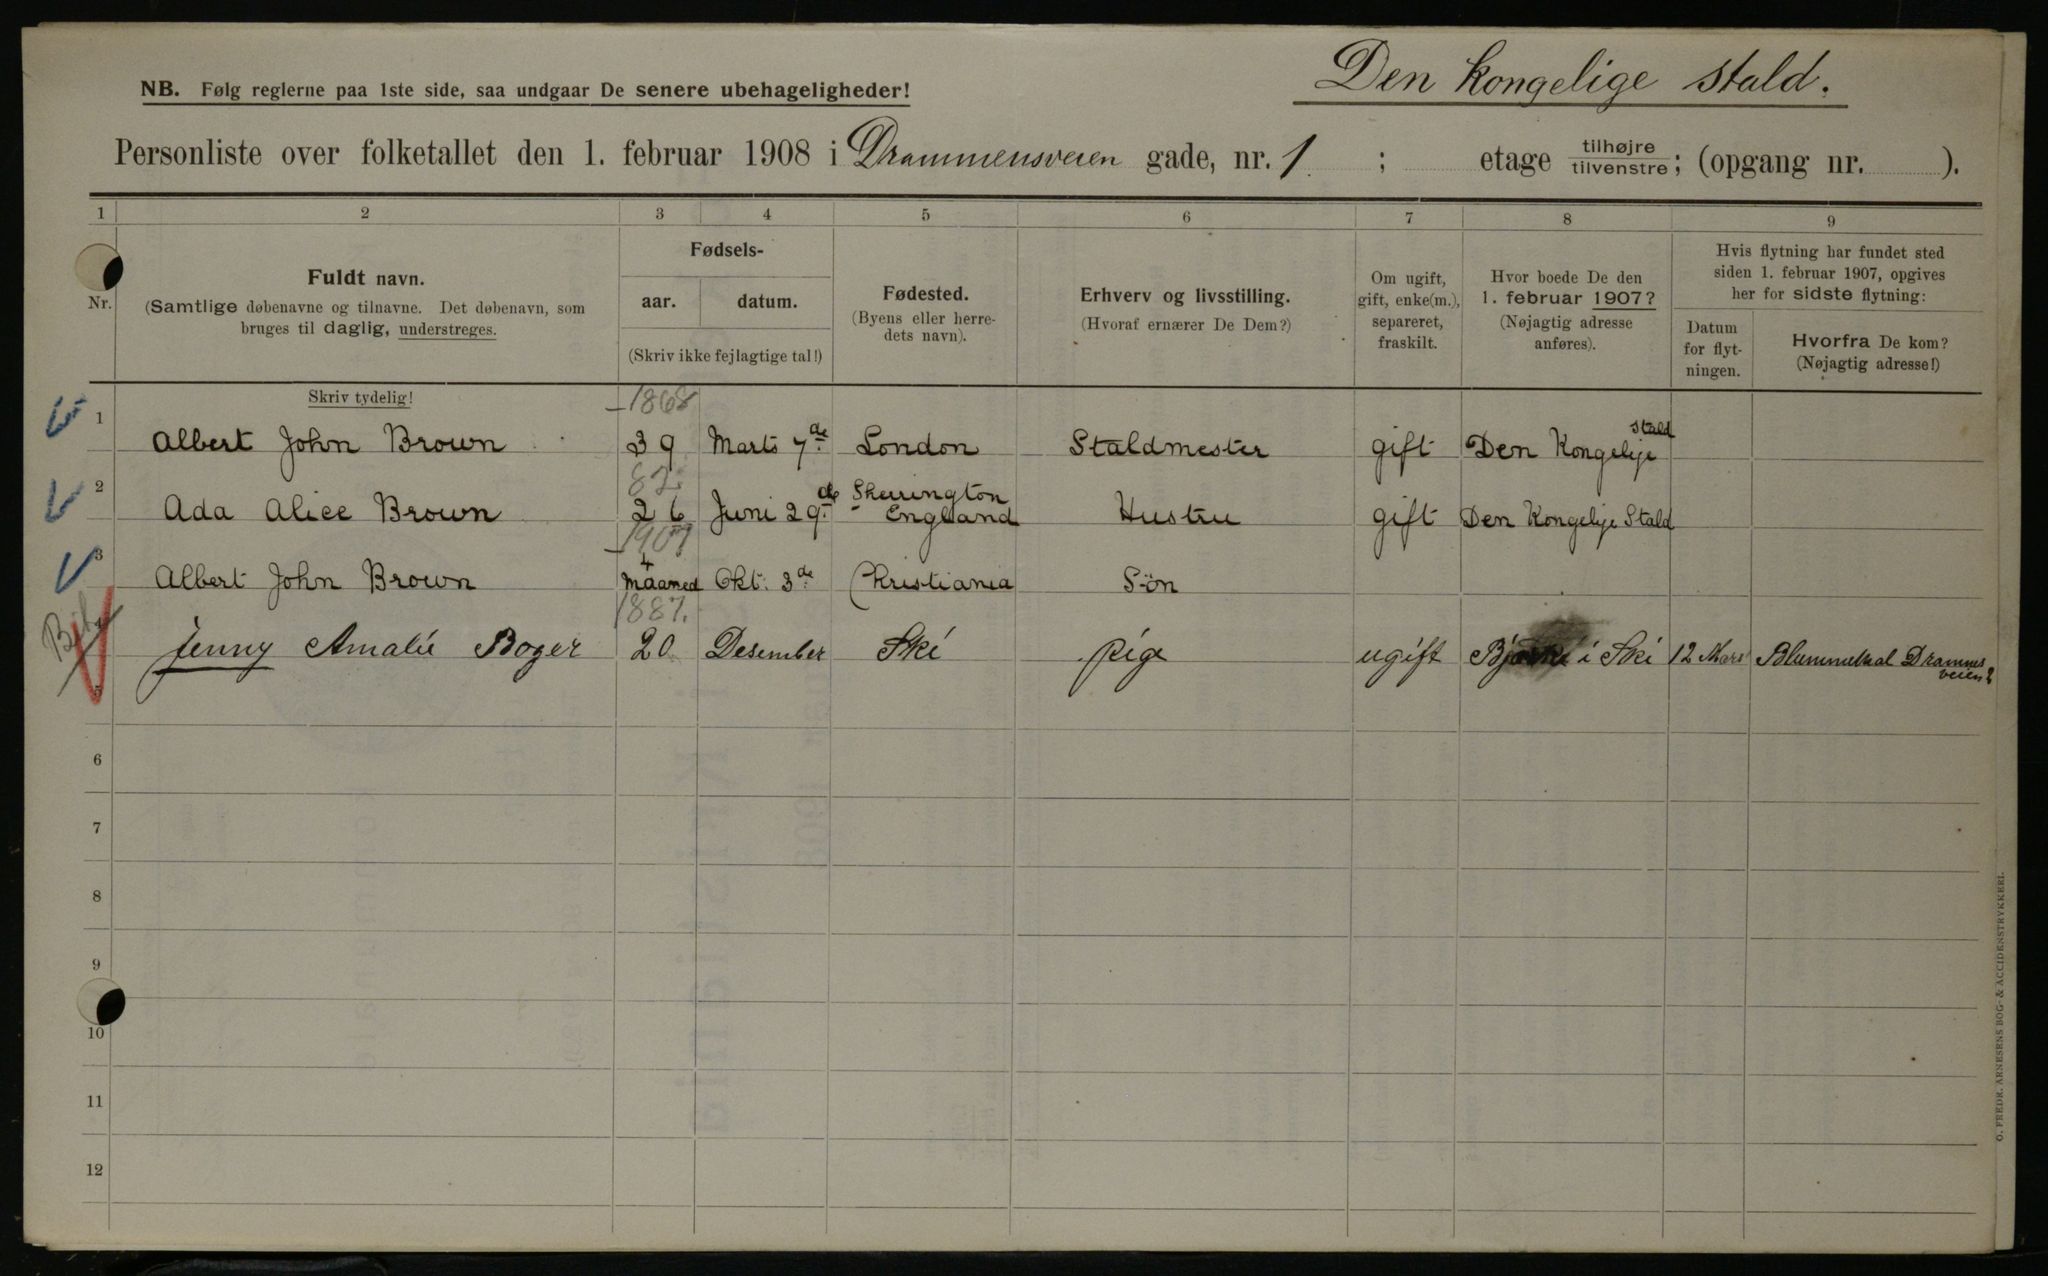 Den kongelige stald.
NB. Følg reglerne paa 1ste side, saa undgaar De senere ubehageligheder!
Personliste over folketallet den 1. februar 1908 i Drammensveien gade, nr. 1 ; etage tilhøjre tilvenstre; (opgang nr. ).
1 2 3 4 5 6 7 8 9
Nr.
Fuldt navn.
(Samtlige døbenavne og tilnavne. Det døbenavn, som
bruges til daglig, understreges.
Skriv tydelig!
Fødsels-
aar. datum.
(Skriv ikke fejlagtige tal!)
Fødested.
(Byens eller herre-
dets navn).
Erhverv og livsstilling.
(Hvoraf ernærer De Dem?)
Om ugift,
gift, enke(m.),
separeret,
fraskilt.
Hvor boede De den
1. februar 1907?
(Nøjagtig adresse
anføres).
Hvis flytning har fundet sted
siden 1. februar 1907, opgives
her for sidste flytning:
Datum
for flyt-
ningen.
Hvorfra De kom?
(Nøjagtig adresse!)
1868
1 Albert John Brown 39 Marts 7de London Staldmester gift Den Kongelije Stald
82.
2 Ada Alice Brown 26 Juni 29de Sherrington England Hustru gift Den Kongelije Stald
1907
3 Albert John Brown 4 Maaned Okt. 3de Christiania Sön
1887.
4 Jenny Amalie Boger 20 Desember Ski pige ugift i Ski 12 Mars Drammens
veien 2
5
6
7
8
9
10
11
12
O. FREDR. ARNESENS BOG- & ACCIDENSTRYKKERI.